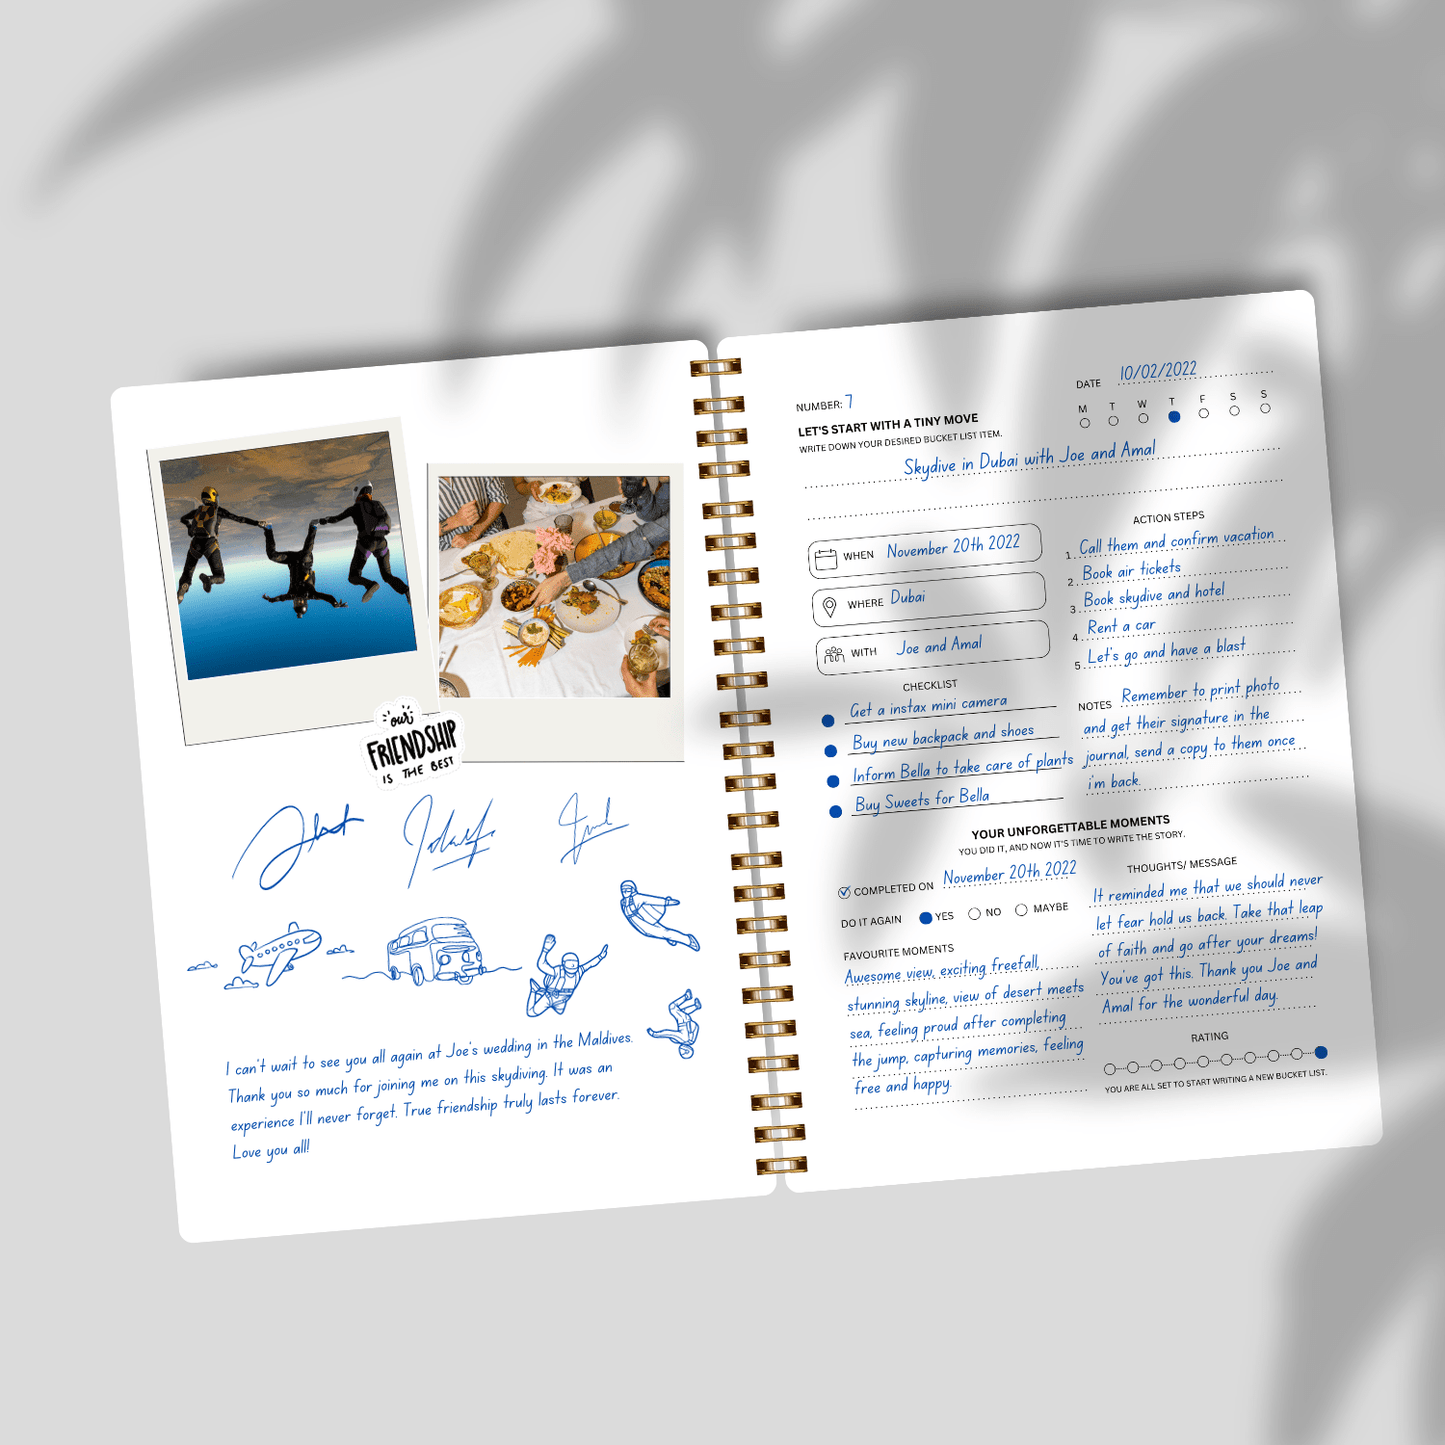 our
FRIENDSHIP
IS THE BEST
I can't wait to see you all again at Joe's wedding in the Maldives.
Thank you so much for joining me on this skydiving. It was an
experience I'll never forget. True friendship truly lasts forever.
Love you all!
NUMBER: 7
DATE 10/02/2022
M T W T F S S
LET'S START WITH A TINY MOVE
WRITE DOWN YOUR DESIRED BUCKET LIST ITEM.
Skydive in Dubai with Joe and Amal
WHEN November 20th 2022
WHERE Dubai
WITH Joe and Amal
ACTION STEPS
1. Call them and confirm vacation
2. Book air tickets
3 Book skydive and hotel
4 Rent a car
5 Let's go and have a blast
CHECKLIST
Get a instax mini camera
Buy new backpack and shoes
Inform Bella to take care of plants
Buy Sweets for Bella
NOTES Remember to print photo
and get their signature in the
journal, send a copy to them once
i'm back.
YOUR UNFORGETTABLE MOMENTS
YOU DID IT, AND NOW IT'S TIME TO WRITE THE STORY.
COMPLETED ON November 20th 2022
DO IT AGAIN YES NO MAYBE
FAVOURITE MOMENTS
Awesome view, exciting freefall,
stunning skyline, view of desert meets
sea, feeling proud after completing
the jump, capturing memories, feeling
free and happy.
THOUGHTS/ MESSAGE
It reminded me that we should never
let fear hold us back. Take that leap
of faith and go after your dreams!
You've got this. Thank you Joe and
Amal for the wonderful day.
RATING
YOU ARE ALL SET TO START WRITING A NEW BUCKET LIST.